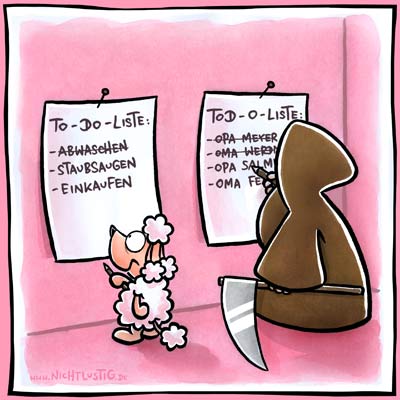 TO-DO-LISTE:
- ABWASCHEN
- STAUBSAUGEN
- EINKAUFEN
TOD-O-LISTE:
- OPA MEYER
- OMA
- OPA
- OMA
WWW.NICHTLUSTIG.DE